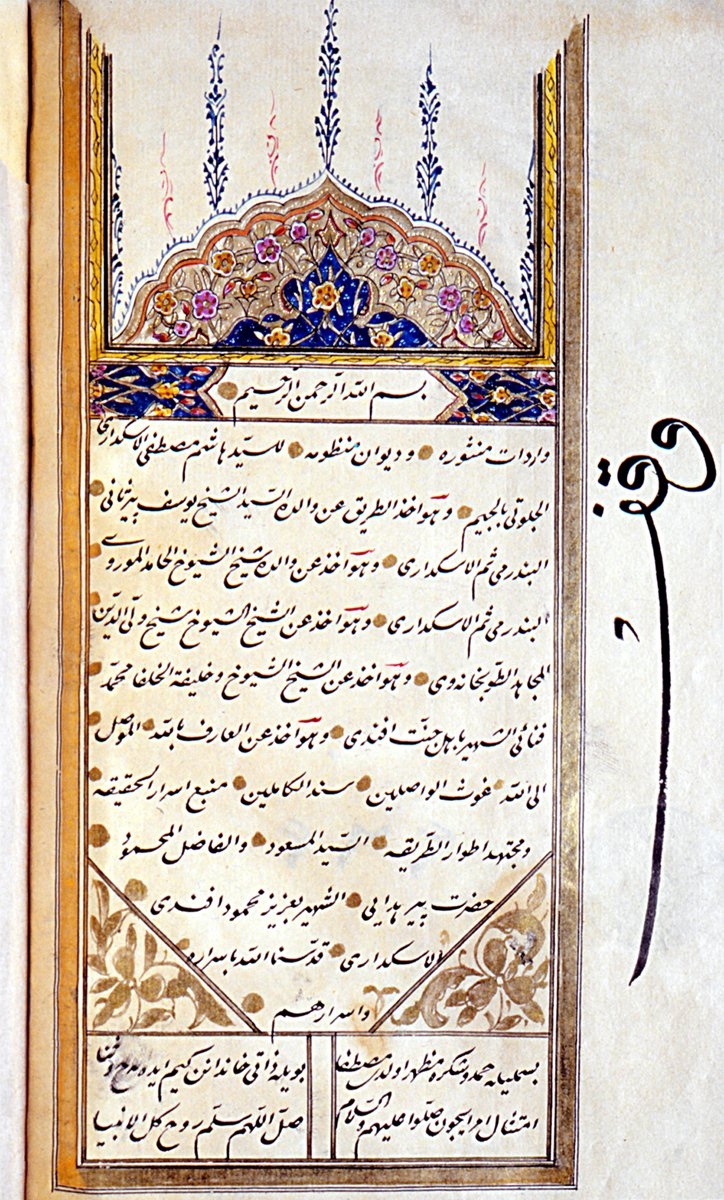 بسم الله الرحمن الرحيم
واردات منثوره وديوان منظومه للسيد هاشم مصطفى الاسكدارى
الجلوتى بالجيم وهو اخذ الطريق عن والده السيد الشيخ يوسف
البندرمى ثم الاسكدارى وهو اخذ عن والده شيخ الشيوخ الحامد
البندرمى ثم الاسكدارى وهو اخذ عن الشيخ الشيوخ شيخ ولى الدين
المجاهد الطوبخانه وى وهو اخذ عن الشيخ الشيوخ وخليفة الخلفا محمد
فنائى الشهير باهل جنت افندى وهو اخذ عن العارف بالله الموصل
الى الله غوث الواصلين سند الكاملين منبع اسرار الحقيقه
ومجتهد اطوار الطريقه السيد المسعود والفاضل المحمود
حضرت پير هدايى الشهير بعزيز محمود افندى
الاسكدارى قدسنا الله باسراره
واسرارهم
بسمليله حمد وشكره مظهر اولدى مصطفا
بويله ذاتى خاندانن كيم ايده مدح وثنا
امتثال امر ايچون صلوا عليهم والسلام
صل اللهم سلم روح كل الانبيا
وقف